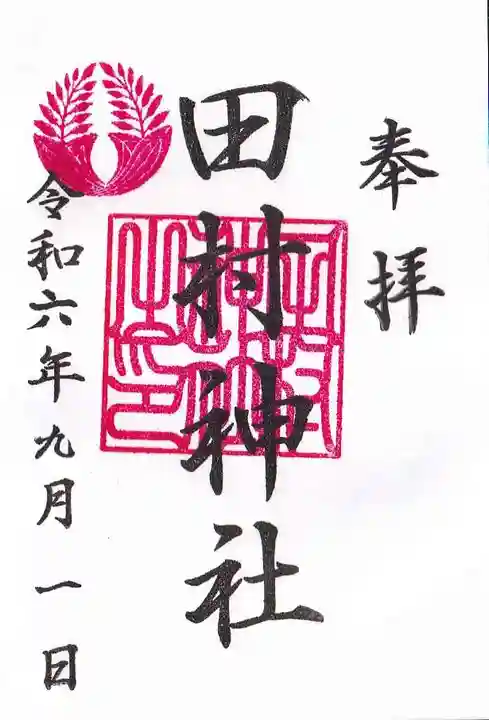 奉拝
田村神社
令和六年九月一日